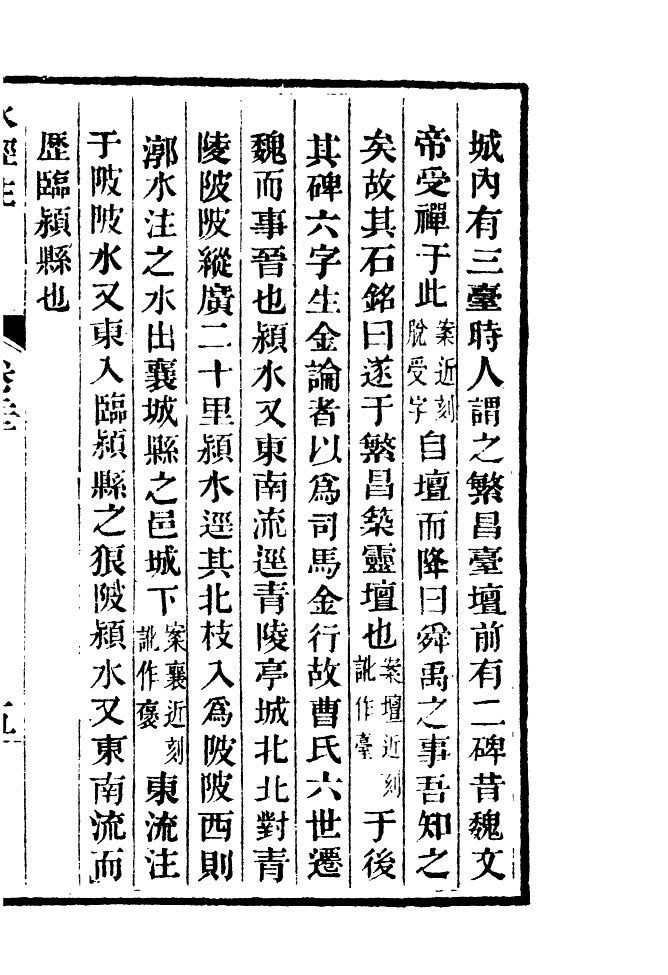 城內有三臺時人謂之繁昌臺壇前有二碑昔魏文
帝受禪于此案近刻脫受字自壇而降曰舜禹之事吾知之
矣故其石銘曰遂于繁昌築靈壇也案壇近刻訛作臺于後
其碑六字生金論者以爲司馬金行故曹氏六世遷
魏而事晉也潁水又東南流逕青陵亭城北北對青
陵陂陂縱廣二十里潁水逕其北枝入爲陂陂西則
漷水注之水出襄城縣之邑城下案襄近刻訛作褒東流注
于陂陂水又東入臨潁縣之狼陂潁水又東南流而
歷臨潁縣也
水經注